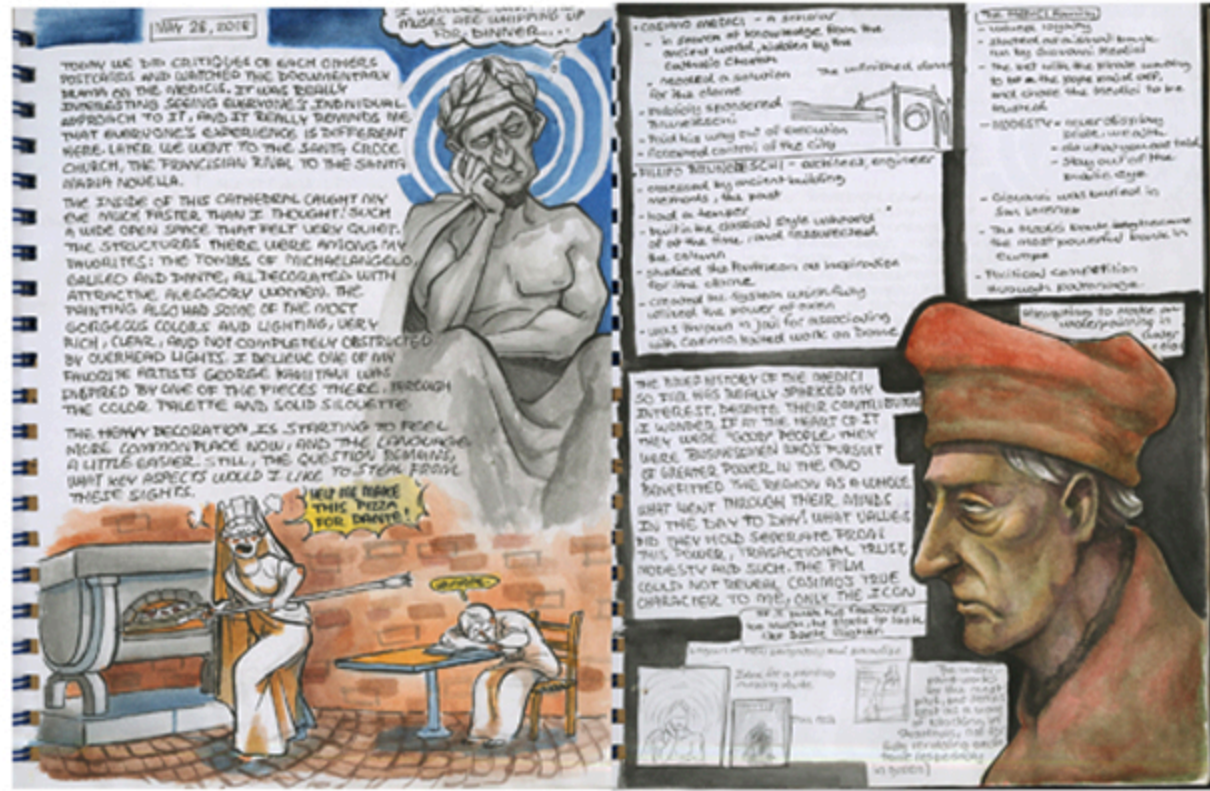 MAY 28, 2018
MUSES ARE WHIPPING UP
FOR DINNER...
TODAY WE DID CRITIQUES OF EACH OTHERS
POSTCARDS AND WATCHED THE DOCUMENTARY
DRAMA ON THE MEDICIS. IT WAS REALLY
INTERESTING SEEING EVERYONE'S INDIVIDUAL
APPROACH TO IT, AND IT REALLY REMINDS ME
THAT EVERYONE'S EXPERIENCE IS DIFFERENT
HERE. LATER WE WENT TO THE SANTA CROCE
CHURCH, THE FRANCISCAN RIVAL TO THE SANTA
MARIA NOVELLA.
THE INSIDE OF THIS CATHEDRAL CAUGHT MY
EYE MUCH FASTER THAN I THOUGHT! SUCH
A WIDE OPEN SPACE THAT FELT VERY QUIET.
THE STRUCTURES THERE WERE AMONG MY
FAVORITES: THE TOMBS OF MICHAELANGELO
GALILEO AND DANTE, ALL DECORATED WITH
ATTRACTIVE ALEGGORY WOMEN. THE
PAINTING ALSO HAD SOME OF THE MOST
GORGEOUS COLORS AND LIGHTING, VERY
RICH, CLEAR, AND NOT COMPLETELY OBSTRUCTED
BY OVERHEAD LIGHTS. I BELIEVE ONE OF MY
FAVORITE ARTISTS GEORGE KAMITANI WAS
INSPIRED BY ONE OF THE PIECES THERE. THROUGH
THE COLOR PALETTE AND SOLID SILOUETTE
THE HEAVY DECORATION IS STARTING TO FEEL
MORE COMMONPLACE NOW, AND THE LANGUAGE
A LITTLE EASIER. STILL, THE QUESTION REMAINS,
WHAT KEY ASPECTS WOULD I LIKE TO STEAL FROM
THESE SIGHTS.
HELP ME MAKE
THIS PIZZA
FOR DANTE!
COSIMO MEDICI - A scholar
- in search of knowledge from the
ancient world, hidden by the
Catholic Church
- needed a solution
for the dome
The unfinished dome
- Publicly sponsored
Brunelleschi
- Paid his way out of execution
- Accepted control of the city
FILIPPO BRUNELLESCHI - architect, engineer
- obsessed by ancient building
methods, the past
- had a temper
- built in the classical style unheard
of at the time, and resurrected
the column
- studied the Pantheon as inspiration
for the dome
- created the system which fully
utilized the power of oxen
- was thrown in jail for associating
with Cosimo, halted work on Dome
The Medici Family
- valued loyalty
- started as a small bank
run by Giovanni Medici
and chose the Medici to be
- MODESTY - never display
pride, wealth
- do what you are told
- Stay out of the
public eye
- Giovanni was buried in
San Lorenzo
- The Medici bank became
the most powerful bank in
Europe
- Political competition
through patronage
Attempting to make an
underpainting in
water
color
THE BRIEF HISTORY OF THE MEDICI
SO FAR HAS REALLY SPARKED MY
INTEREST. DESPITE THEIR CONTRIBUTIONS
I WONDER IF AT THE HEART OF IT
THEY WERE "GOOD" PEOPLE. THEY
WERE BUSINESSMEN WHO'S PURSUIT
OF GREATER POWER IN THE END
BENEFITTED THE REGION AS A WHOLE
WHAT WENT THROUGH THEIR MINDS
IN THE DAY TO DAY? WHAT VALUES
DID THEY HOLD SEPERATE FROM
THIS POWER, TRASACTIONAL TRUST,
MODESTY AND SUCH. THE FILM
COULD NOT REVEAL COSIMO'S TRUE
CHARACTER TO ME, ONLY THE ICON
If I push his features
too much, he starts to look
like Dante Alighieri
Idea for a painting